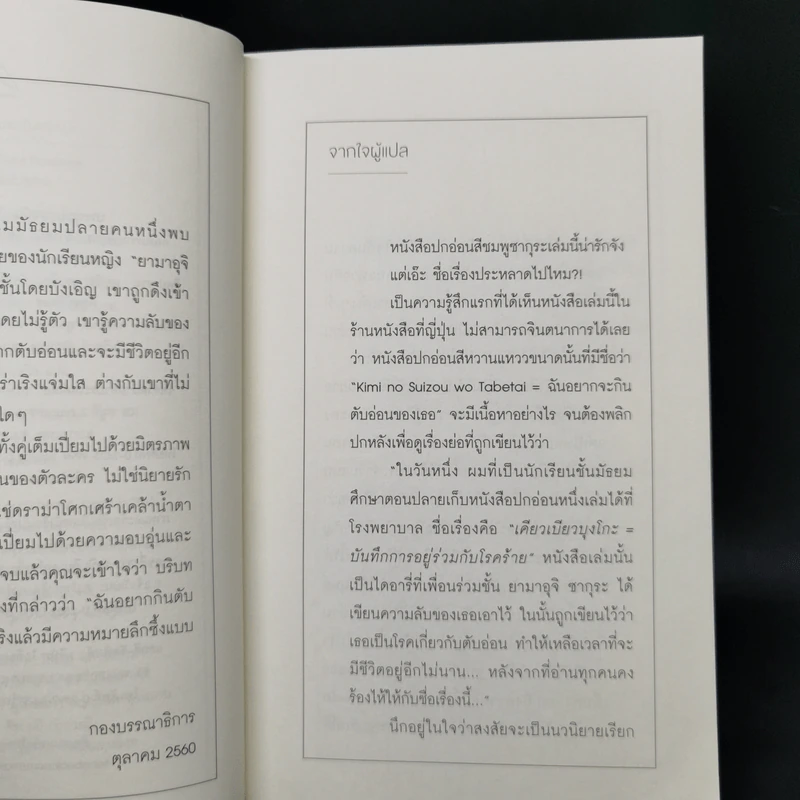 มมัธยมปลายคนหนึ่งพบ
ยของนักเรียนหญิง "ยามาอุจิ
ชั้นโดยบังเอิญ เขาถูกดึงเข้า
ดยไม่รู้ตัว เขารู้ความลับของ
ากตับอ่อนและจะมีชีวิตอยู่อีก
ร่าเริงแจ่มใส ต่างกับเขาที่ไม่
ใดๆ
ทั้งคู่เต็มเปี่ยมไปด้วยมิตรภาพ
นของตัวละคร ไม่ใช่นิยายรัก
ใช่ดราม่าโศกเศร้าเคล้าน้ำตา
เปี่ยมไปด้วยความอบอุ่นและ
จบแล้วคุณจะเข้าใจว่า บริบท
งที่กล่าวว่า "ฉันอยากกินตับ
ริงแล้วมีความหมายลึกซึ้งแบบ
กองบรรณาธิการ
ตุลาคม 2560
จากใจผู้แปล
หนังสือปกอ่อนสีชมพูซากุระเล่มนี้น่ารักจัง
แต่เอ๊ะ ชื่อเรื่องประหลาดไปไหม?!
เป็นความรู้สึกแรกที่ได้เห็นหนังสือเล่มนี้ใน
ร้านหนังสือที่ญี่ปุ่น ไม่สามารถจินตนาการได้เลย
ว่า หนังสือปกอ่อนสีหวานแหววขนาดนั้นที่มีชื่อว่า
"Kimi no Suizou wo Tabetai = ฉันอยากจะกิน
ตับอ่อนของเธอ" จะมีเนื้อหาอย่างไร จนต้องพลิก
ปกหลังเพื่อดูเรื่องย่อที่ถูกเขียนไว้ว่า
"ในวันหนึ่ง ผมที่เป็นนักเรียนชั้นมัธยม
ศึกษาตอนปลายเก็บหนังสือปกอ่อนหนึ่งเล่มได้ที่
โรงพยาบาล ชื่อเรื่องคือ "เคียวเบียวบุงโกะ =
บันทึกการอยู่ร่วมกับโรคร้าย" หนังสือเล่มนั้น
เป็นไดอารี่ที่เพื่อนร่วมชั้น ยามาอุจิ ซากุระ ได้
เขียนความลับของเธอเอาไว้ ในนั้นถูกเขียนไว้ว่า
เธอเป็นโรคเกี่ยวกับตับอ่อน ทำให้เหลือเวลาที่จะ
มีชีวิตอยู่อีกไม่นาน... หลังจากที่อ่านทุกคนคง
ร้องไห้ให้กับชื่อเรื่องนี้..."
นึกอยู่ในใจว่าสงสัยจะเป็นนวนิยายเรียก